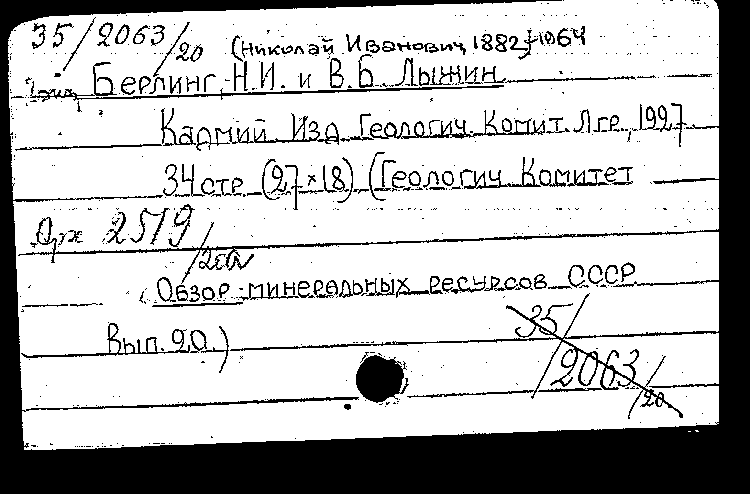 35/2063/20 (Николай Иванович, 1882-1964
Берлинг, Н.И. и В.Б. Лыжин
Кадмий. Изд. Геологич. Комит. Лгр., 1927.
34 стр (27×18) (Геологич. Комитет
Арх 2519/20а
Обзор минеральных ресурсов СССР
Вып. 20.)
35/2063/20